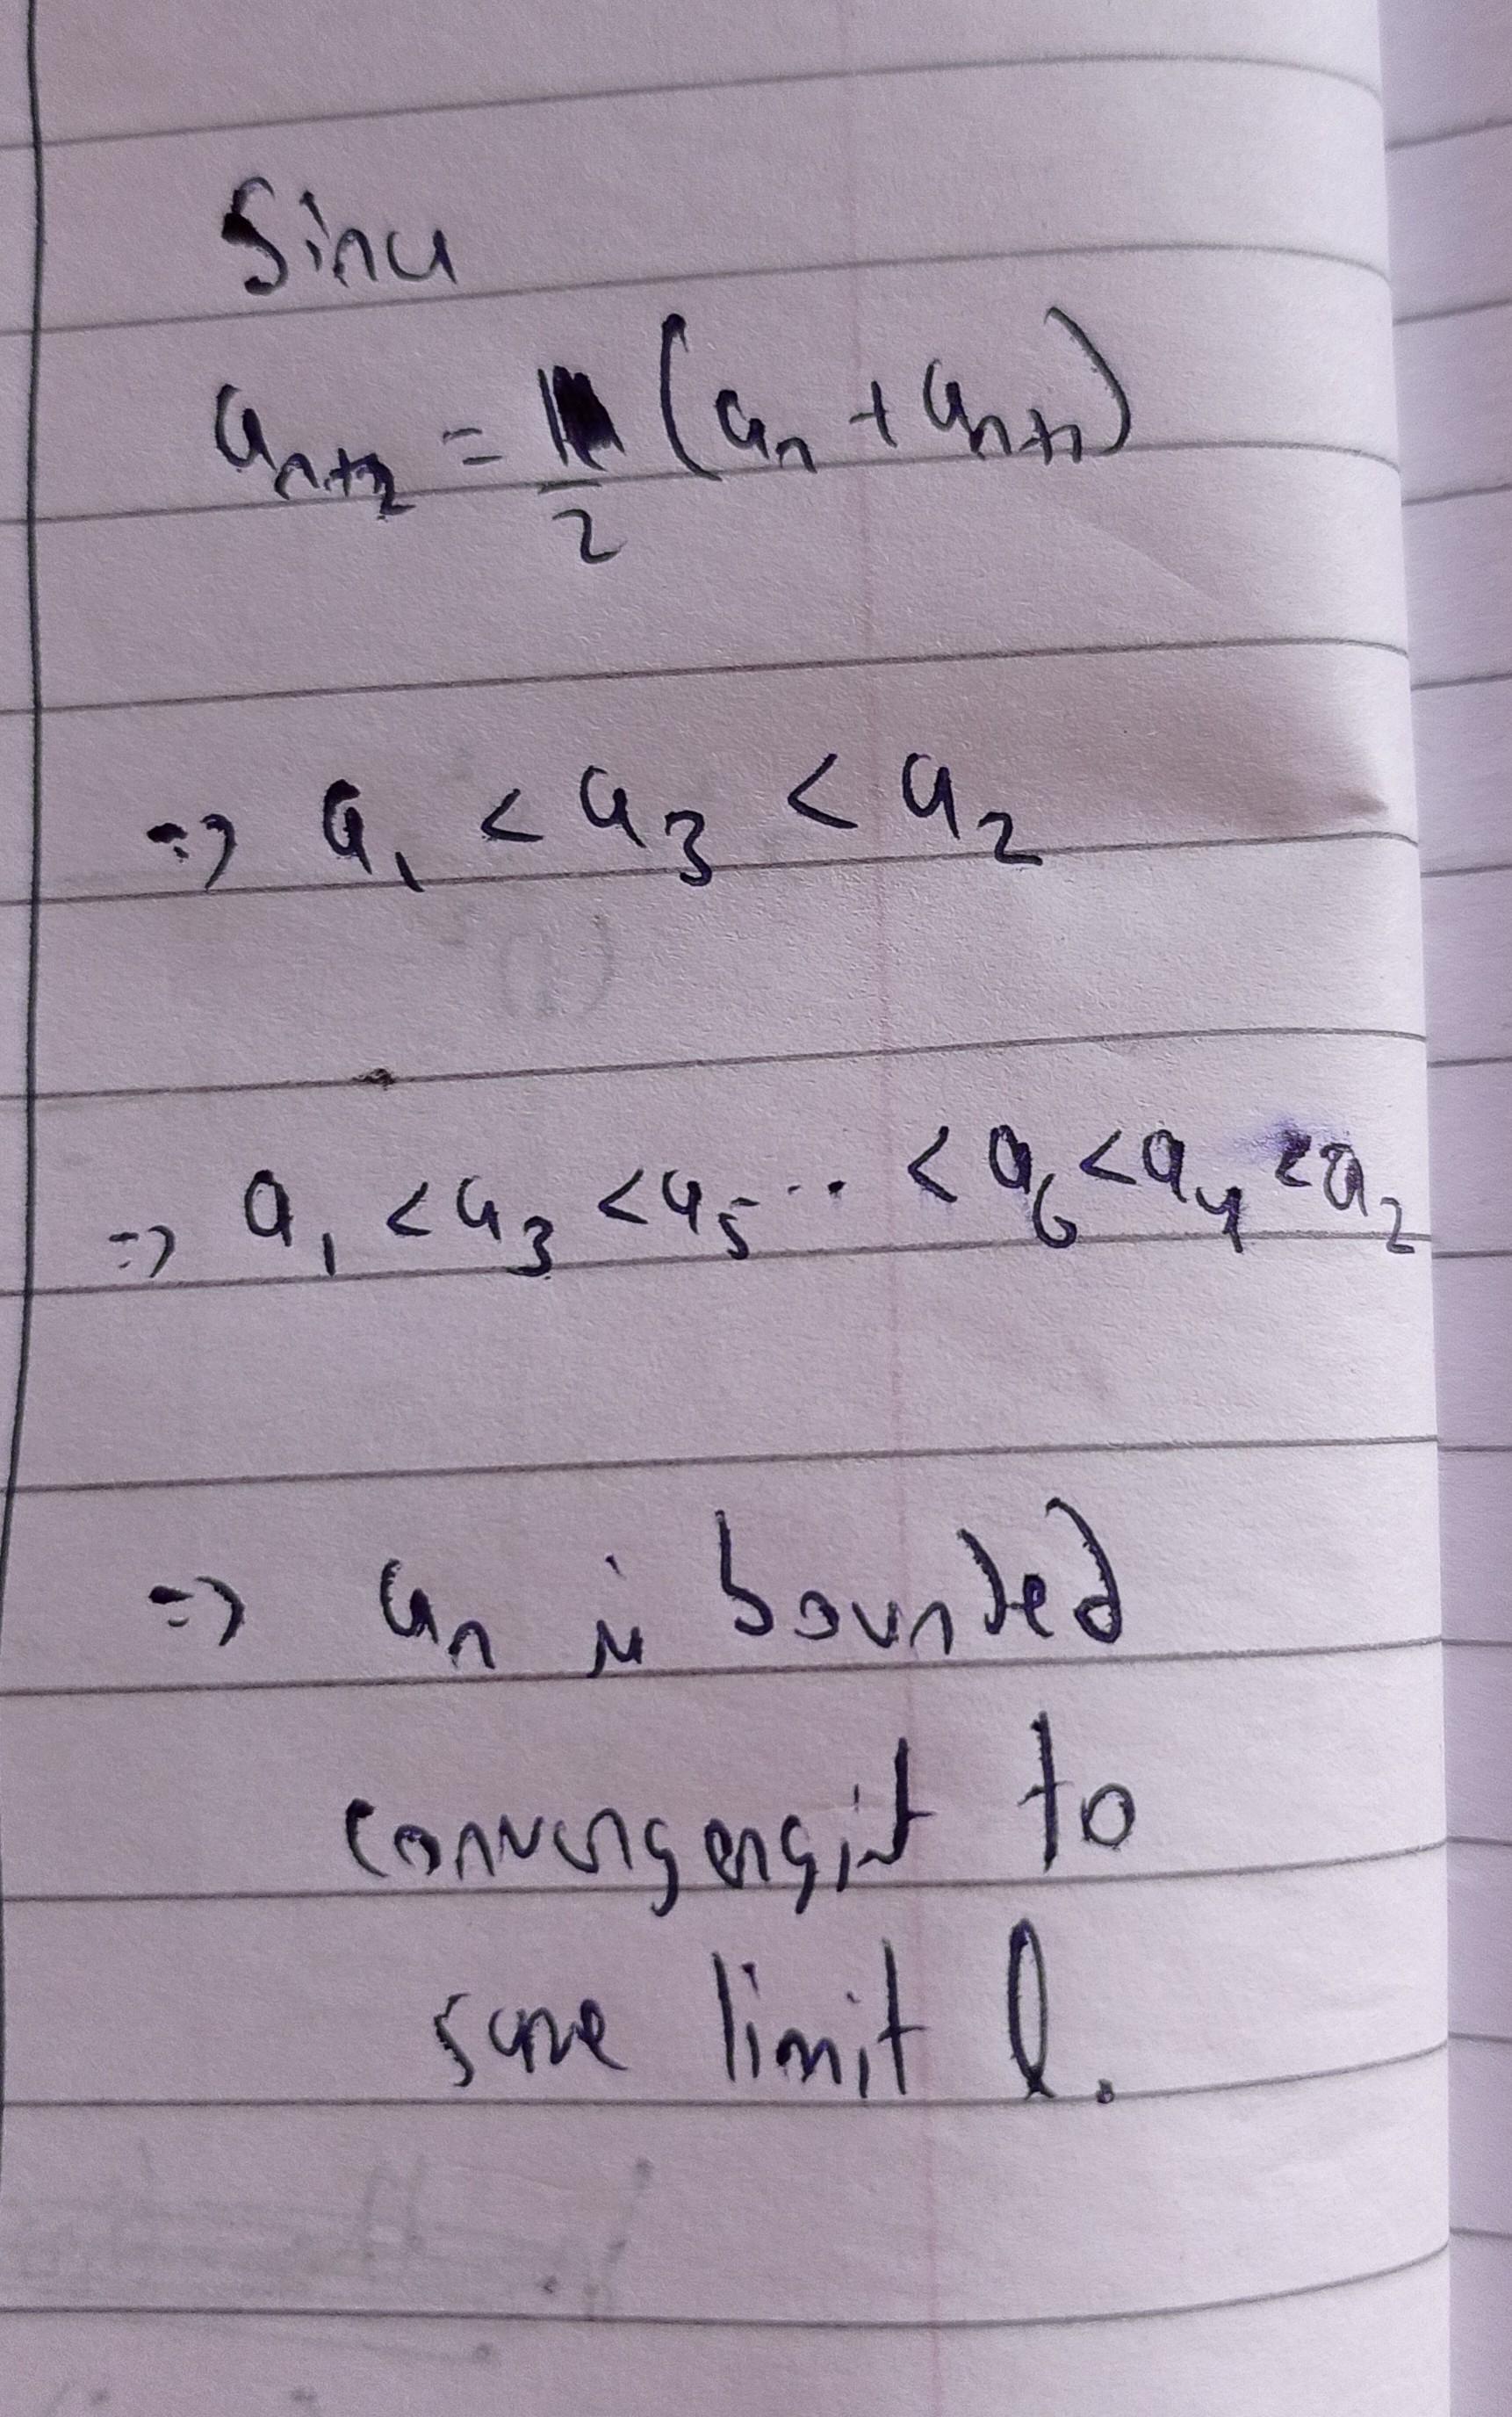 Since
aₙ₊₂ = 1/2 (aₙ + aₙ₊₁)
=> a₁ < a₃ < a₂
=> a₁ < a₃ < a₅ ... < a₆ < a₄ < a₂
=> aₙ is bounded
convergengit to
same limit l.